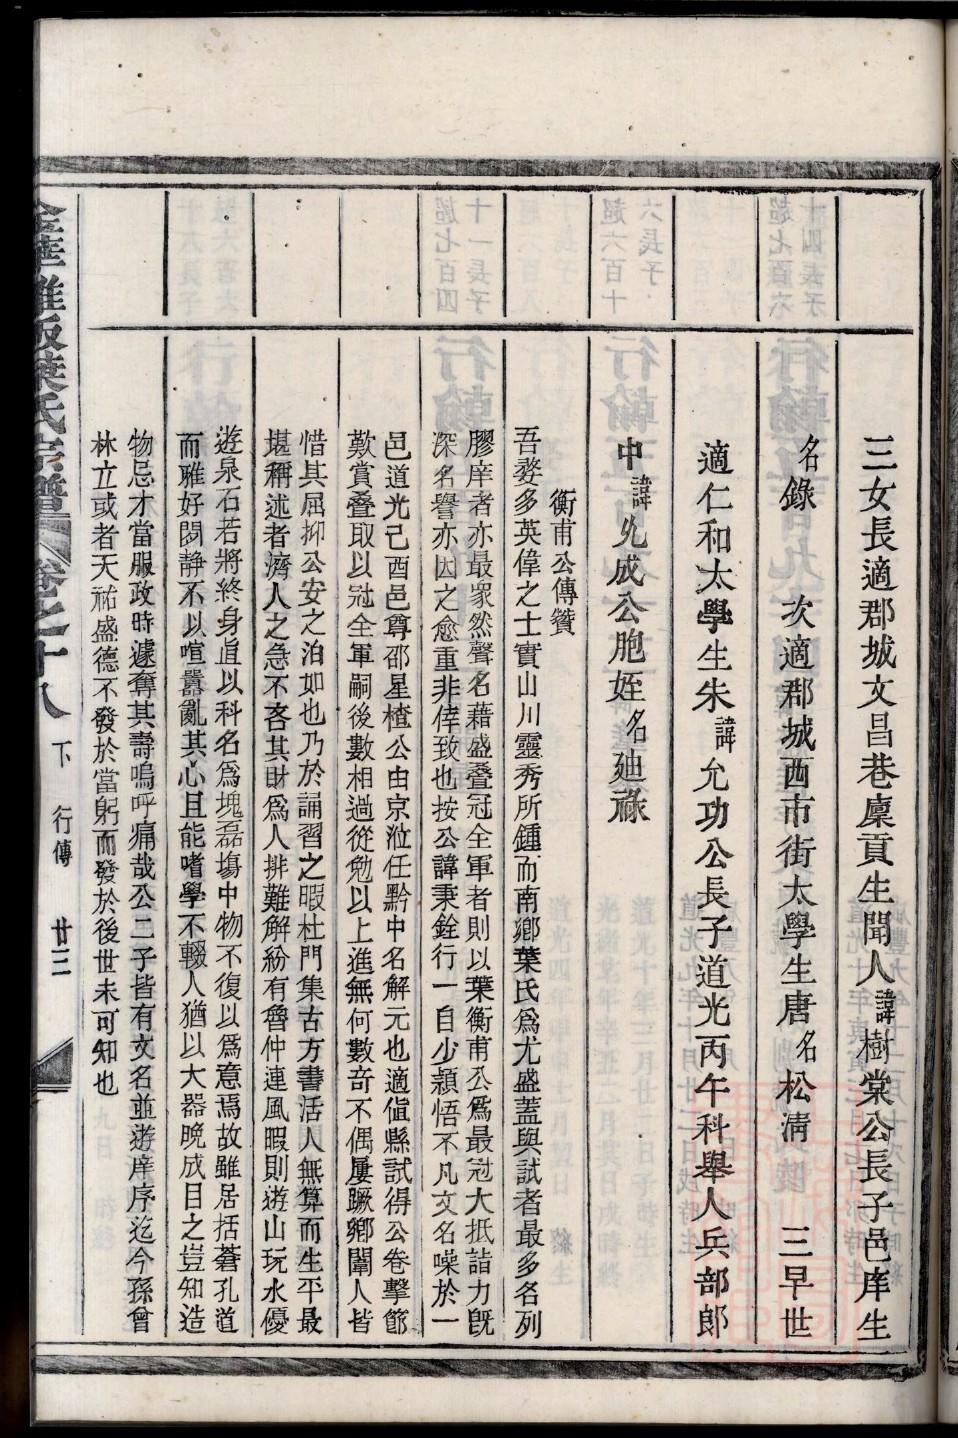 三女長適郡城文昌巷廩貢生聞人諱樹棠公長子邑庠生
名錄　次適郡城西市街太學生唐名松淸　三早世
適仁和太學生朱諱允功公長子道光丙午科舉人兵部郎
中諱允成公胞姪名廸祿
衡甫公傳贊
吾婺多英偉之士實山川靈秀所鍾而南鄕葉氏爲尤盛蓋與試者最多名列
膠庠者亦最衆然聲名藉盛疊冠全軍者則以葉衡甫公爲最冠大抵詣力旣
深名譽亦因之愈重非倖致也按公諱秉銓行一自少穎悟不凡文名噪於一
邑道光己酉邑尊邵星楂公由京涖任黔中名解元也適値縣試得公卷擊節
歎賞疊取以冠全軍嗣後數相過從勉以上進無何數奇不偶屢蹶鄕闈人皆
惜其屈抑公安之泊如也乃於誦習之暇杜門集古方書活人無算而生平最
堪稱述者濟人之急不吝其財爲人排難解紛有魯仲連風暇則遊山玩水優
遊泉石若將終身直以科名爲塊磊塲中物不復以爲意焉故雖居括蒼孔道
而雅好閒靜不以喧囂亂其心且能嗜學不輟人猶以大器晩成目之豈知造
物忌才當服政時遽奪其壽嗚呼痛哉公二子皆有文名並遊庠序迄今孫曾
林立或者天祐盛德不發於當躬而發於後世未可知也
金華雅畈葉氏宗譜　卷之十八　下　行傳　廿三